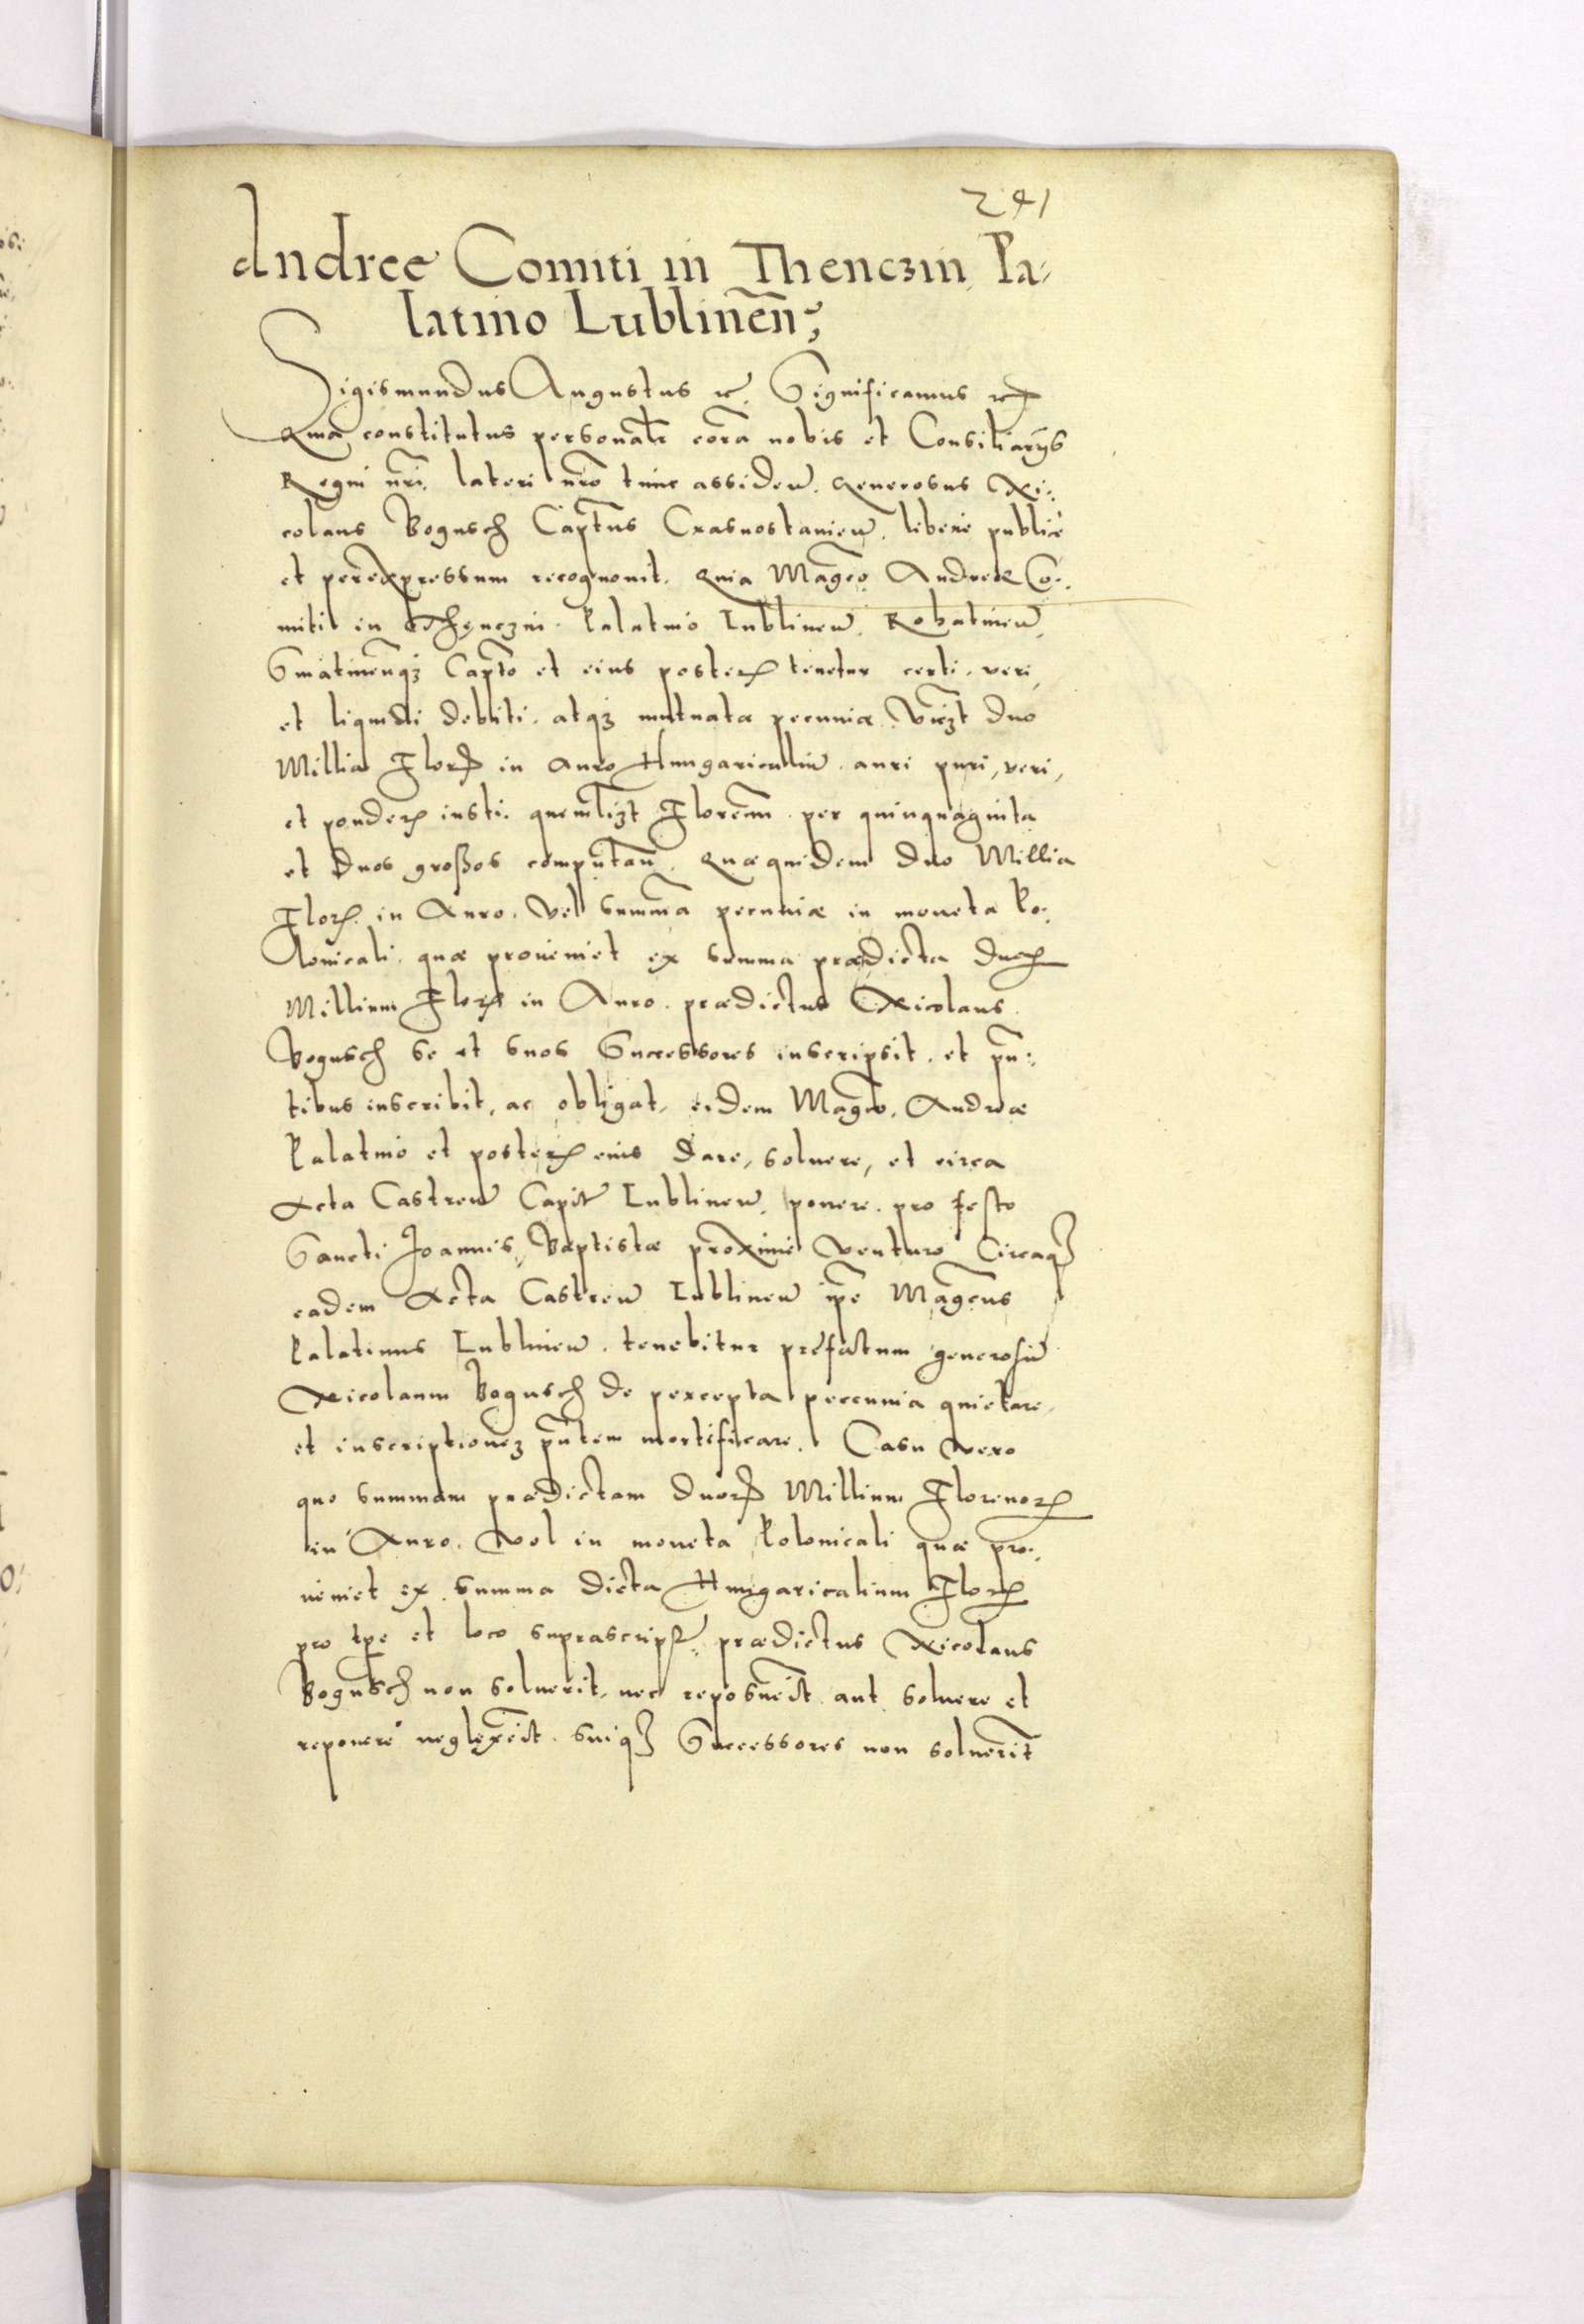 241
Andree Comiti in Thenczin Pa-
latino Lublinen̄;
Sigismundus Augustus etc. Significamus etc.
Quia constitutus personalr̄ corā nobis et Consiliarijs
Regni nr̄i, lateri nr̄o tunc assiden̄. Generosus Ni:
colaus Bogusch Capt̄us Crasnostauien̄. libere publicè
et per expressum recognouit. Quia Maḡco Andreæ Co:
miti in Thęnczin. Palatino Lublinen̄. Rohatinen̄,
Sniatinen̄q₃ Capt̄o et eius posteris tenetur certi. veri,
et liquidi debiti. atq₃ mutuatæ pecuniæ. Vicz̄t duo
Millia Floꝝ in auro Hungaricaliū. auri puri, veri,
et ponderis iusti. quemliz̄t Florenū. per quinquaginta
et duos großos computan̄. Quæquidem duo Millia
Floꝝ in Auro. vel sum̄mā pecuniæ in moneta Po:
lonicali. quæ proueniet ex summa prædicta duoꝝ
Millium Floꝝ in Auro. prædictus Nicolaus
Bogusch se et suos Successores inscripsit. et pn̄:
tibus inscribit, ac obligat, eidem Maḡco. Andreæ
Palatino et posteris eius dare, soluere, et circa
Acta Castren̄ Capit̄ Lublinen̄. ponere. pro festo
Sancti Joannis Baptistæ proximè venturo Circaq₃
eadem Acta Castren̄ Lublinen̄ ip̄e Maḡcus
Palatinus Lublinen̄. tenebitur præfatum generosū
Nicolaum Bogusch de percepta peccunia quietare,
et inscriptionez pn̄tem mortificare. Casu vero
quo summam prædictam duoꝝ Millium Florenoꝝ
in Auro. vel in moneta Polonicali quæ pro:
ueniet ex summa dicta Hungaricalium Floꝝ
pro tp̄e et loco suprascript̄. prædictus Nicolaus
Bogusch non soluerit, nec reposuerit aut soluere et
reponere neglexerit. suiq₃ Successores non soluerīt